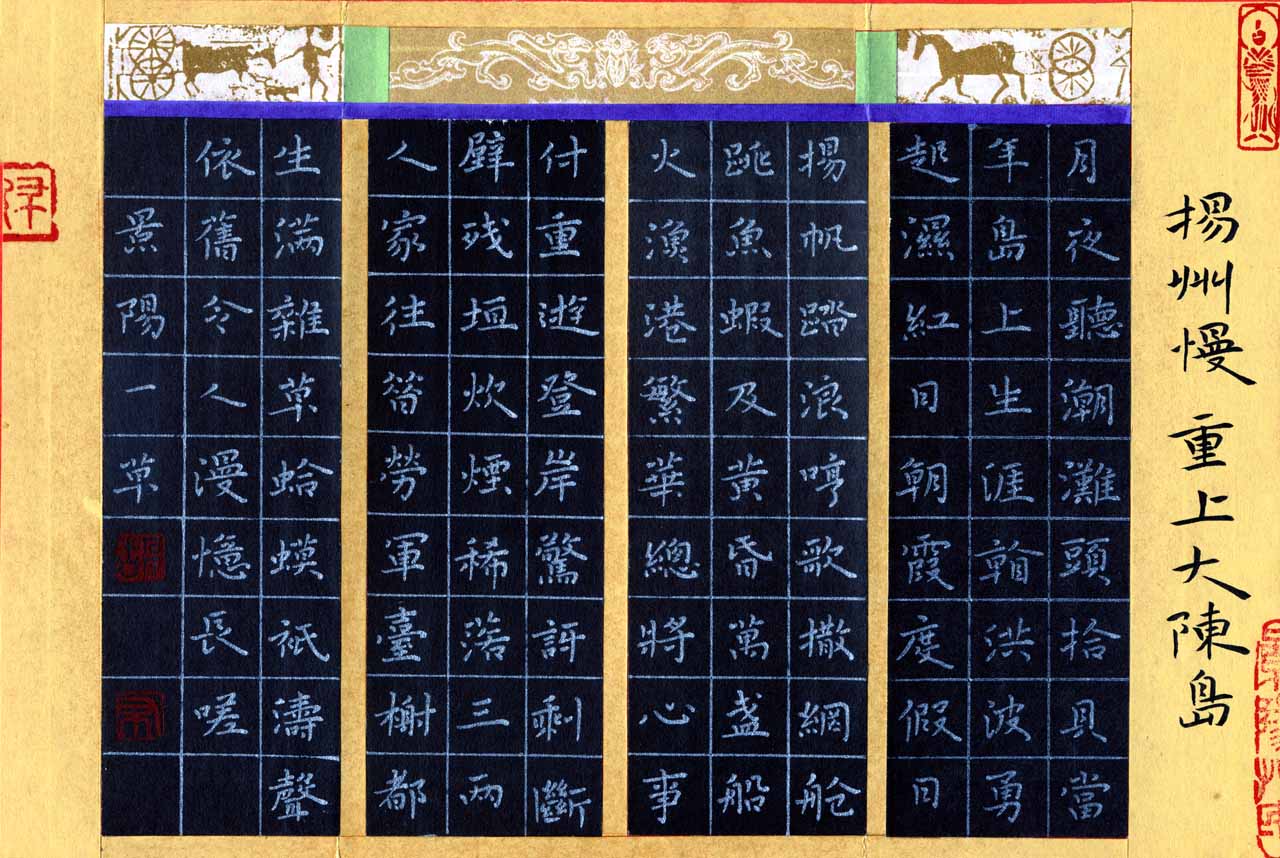 揚州慢 重上大陳島
月夜聽潮灘頭拾具當
年島上生涯翰洪波勇
起濕紅日朝霞度假日
揚帆踏浪哼歌撒網舱
跳魚蝦及黃昏萬盏船
火漁港繁華總將心事
付重遊登岸驚訝剩斷
壁残垣炊煙稀落三两
人家往笤勞軍臺榭都
生满雜草蛤蟆祇濤聲
依舊令人漫憶長嗟
景陽一草